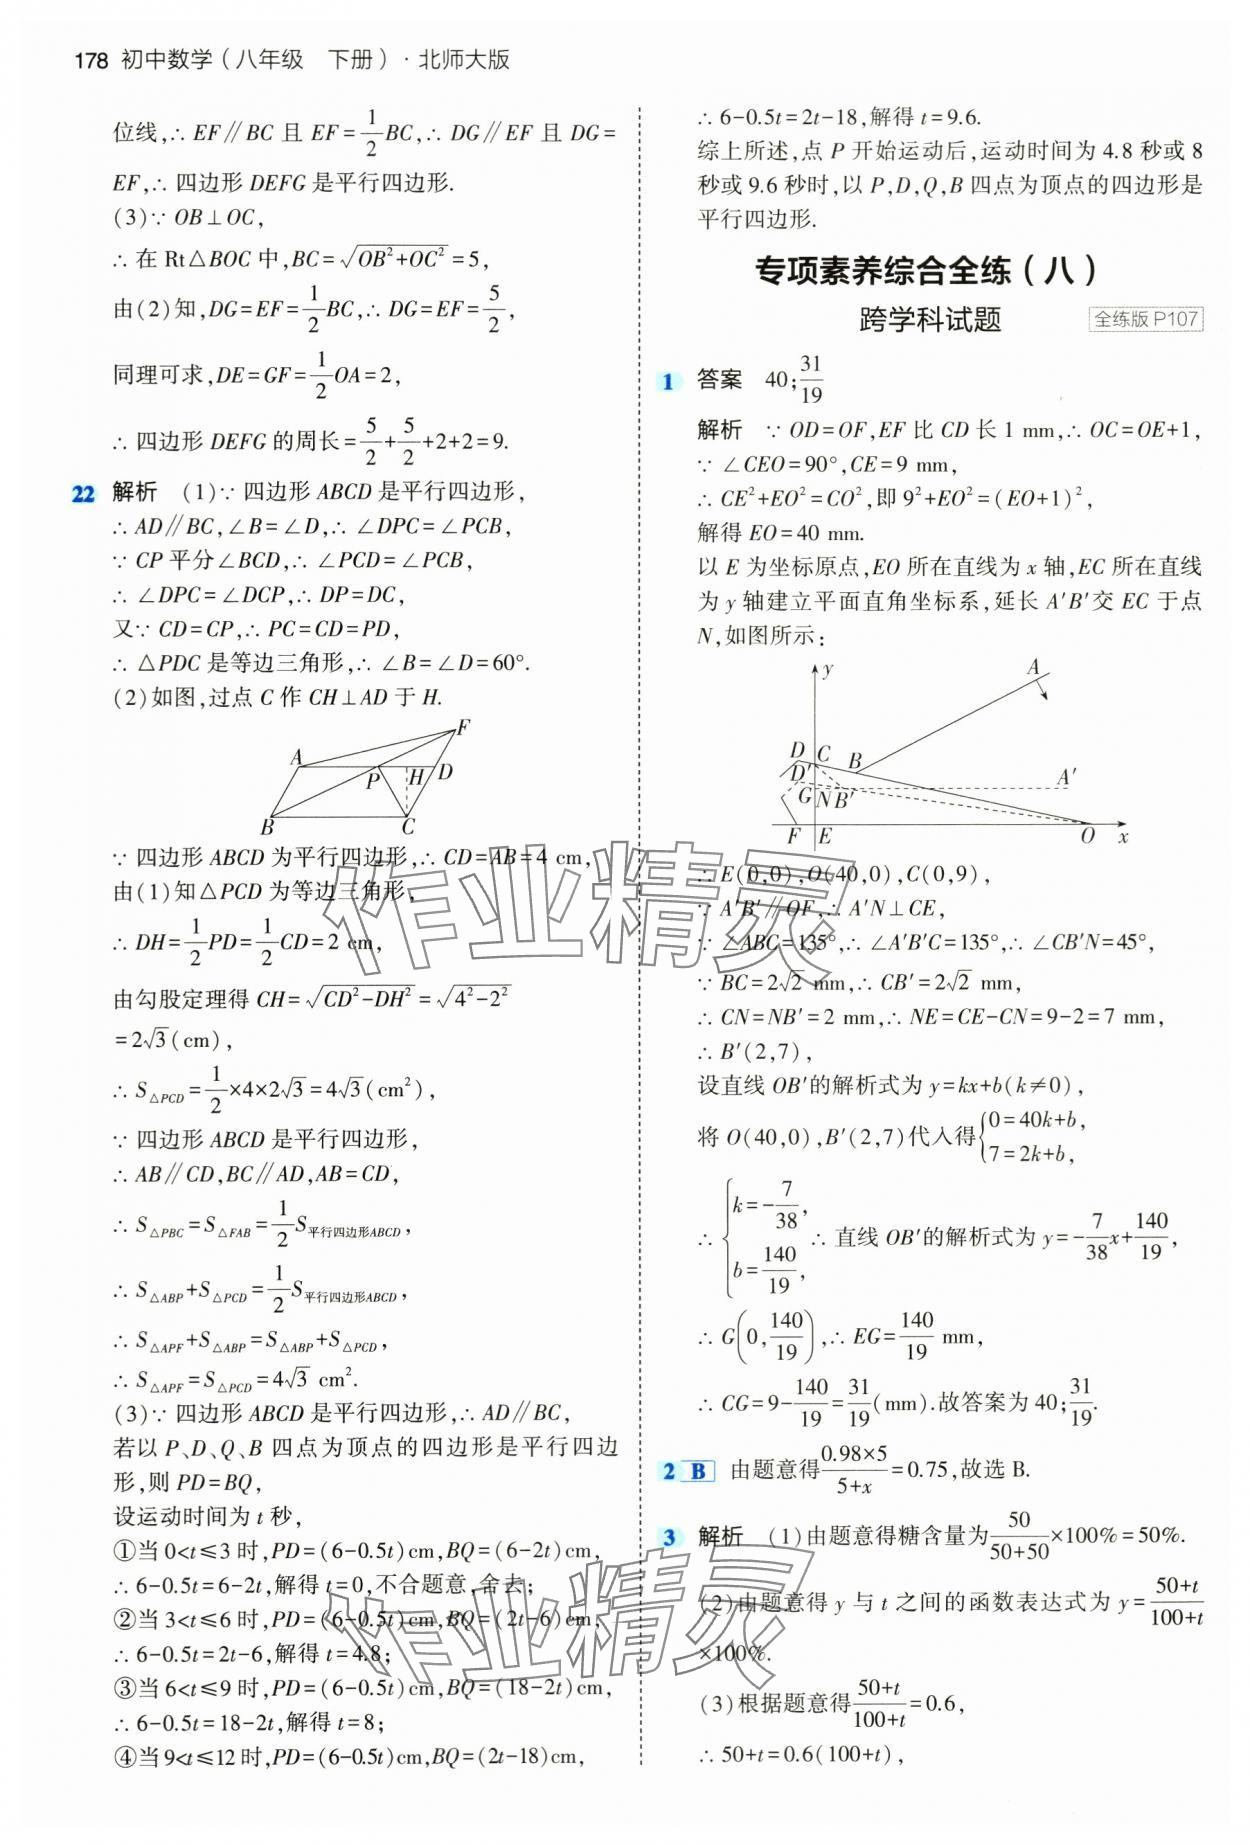 178 初中数学(八年级 下册)·北师大版
位线,∴ EF∥BC 且 EF=\frac{1}{2}BC,∴ DG∥EF 且 DG=
EF,∴ 四边形 DEFG 是平行四边形.
(3)∵ OB⊥OC,
∴ 在 Rt△BOC 中,BC=√(OB²+OC²)=5,
由(2)知,DG=EF=\frac{1}{2}BC,∴ DG=EF=\frac{5}{2},
同理可求,DE=GF=\frac{1}{2}OA=2,
∴ 四边形 DEFG 的周长=\frac{5}{2}+\frac{5}{2}+2+2=9.
22 解析 (1)∵ 四边形 ABCD 是平行四边形,
∴ AD∥BC,∠B=∠D,∴ ∠DPC=∠PCB,
∵ CP 平分∠BCD,∴ ∠PCD=∠PCB,
∴ ∠DPC=∠DCP,∴ DP=DC,
又∵ CD=CP,∴ PC=CD=PD,
∴ △PDC 是等边三角形,∴ ∠B=∠D=60°.
(2)如图,过点 C 作 CH⊥AD 于 H.
F
A
P
H
D
B
C
∵ 四边形 ABCD 为平行四边形,∴ CD=AB=4 cm,
由(1)知△PCD 为等边三角形,
∴ DH=\frac{1}{2}PD=\frac{1}{2}CD=2 cm,
由勾股定理得 CH=√(CD²-DH²)=√(4²-2²)
=2√3(cm),
∴ S△PCD=\frac{1}{2}×4×2√3=4√3(cm²),
∵ 四边形 ABCD 是平行四边形,
∴ AB∥CD,BC∥AD,AB=CD,
∴ S△PBC=S△FAB=\frac{1}{2}S平行四边形ABCD,
∴ S△ABP+S△PCD=\frac{1}{2}S平行四边形ABCD,
∴ S△APF+S△ABP=S△ABP+S△PCD,
∴ S△APF=S△PCD=4√3 cm².
(3)∵ 四边形 ABCD 是平行四边形,∴ AD∥BC,
若以 P、D、Q、B 四点为顶点的四边形是平行四边
形,则 PD=BQ,
设运动时间为 t 秒,
①当 0<t≤3 时,PD=(6-0.5t)cm,BQ=(6-2t)cm,
∴ 6-0.5t=6-2t,解得 t=0,不合题意,舍去;
②当 3<t≤6 时,PD=(6-0.5t)cm,BQ=(2t-6)cm,
∴ 6-0.5t=2t-6,解得 t=4.8;
③当 6<t≤9 时,PD=(6-0.5t)cm,BQ=(18-2t)cm,
∴ 6-0.5t=18-2t,解得 t=8;
④当 9<t≤12 时,PD=(6-0.5t)cm,BQ=(2t-18)cm,
∴ 6-0.5t=2t-18,解得 t=9.6.
综上所述,点 P 开始运动后,运动时间为 4.8 秒或 8
秒或 9.6 秒时,以 P,D,Q,B 四点为顶点的四边形是
平行四边形.
专项素养综合全练(八)
跨学科试题 全练版 P107
1 答案 40;\frac{31}{19}
解析 ∵ OD=OF,EF 比 CD 长 1 mm,∴ OC=OE+1,
∵ ∠CEO=90°,CE=9 mm,
∴ CE²+EO²=CO²,即 9²+EO²=(EO+1)²,
解得 EO=40 mm.
以 E 为坐标原点,EO 所在直线为 x 轴,EC 所在直线
为 y 轴建立平面直角坐标系,延长 A′B′交 EC 于点
N,如图所示:
y
A
D C B
D′
A′
G N B′
F E O x
∴ E(0,0),O(40,0),C(0,9),
∵ A′B′∥OF,∴ A′N⊥CE,
∵ ∠ABC=135°,∴ ∠A′B′C=135°,∴ ∠CB′N=45°,
∵ BC=2√2 mm,∴ CB′=2√2 mm,
∴ CN=NB′=2 mm,∴ NE=CE-CN=9-2=7 mm,
∴ B′(2,7),
设直线 OB′的解析式为 y=kx+b(k≠0),
将 O(40,0),B′(2,7)代入得{0=40k+b,
7=2k+b,
∴ {k=-\frac{7}{38},
b=\frac{140}{19},
∴ 直线 OB′的解析式为 y=-\frac{7}{38}x+\frac{140}{19},
∴ G(0,\frac{140}{19}),∴ EG=\frac{140}{19} mm,
∴ CG=9-\frac{140}{19}=\frac{31}{19}(mm).故答案为 40;\frac{31}{19}.
2 B 由题意得\frac{0.98×5}{5+x}=0.75,故选 B.
3 解析 (1)由题意得糖含量为\frac{50}{50+50}×100%=50%.
(2)由题意得 y 与 t 之间的函数表达式为 y=\frac{50+t}{100+t}
×100%.
(3)根据题意得\frac{50+t}{100+t}=0.6,
∴ 50+t=0.6(100+t),
作业精灵
作业精灵